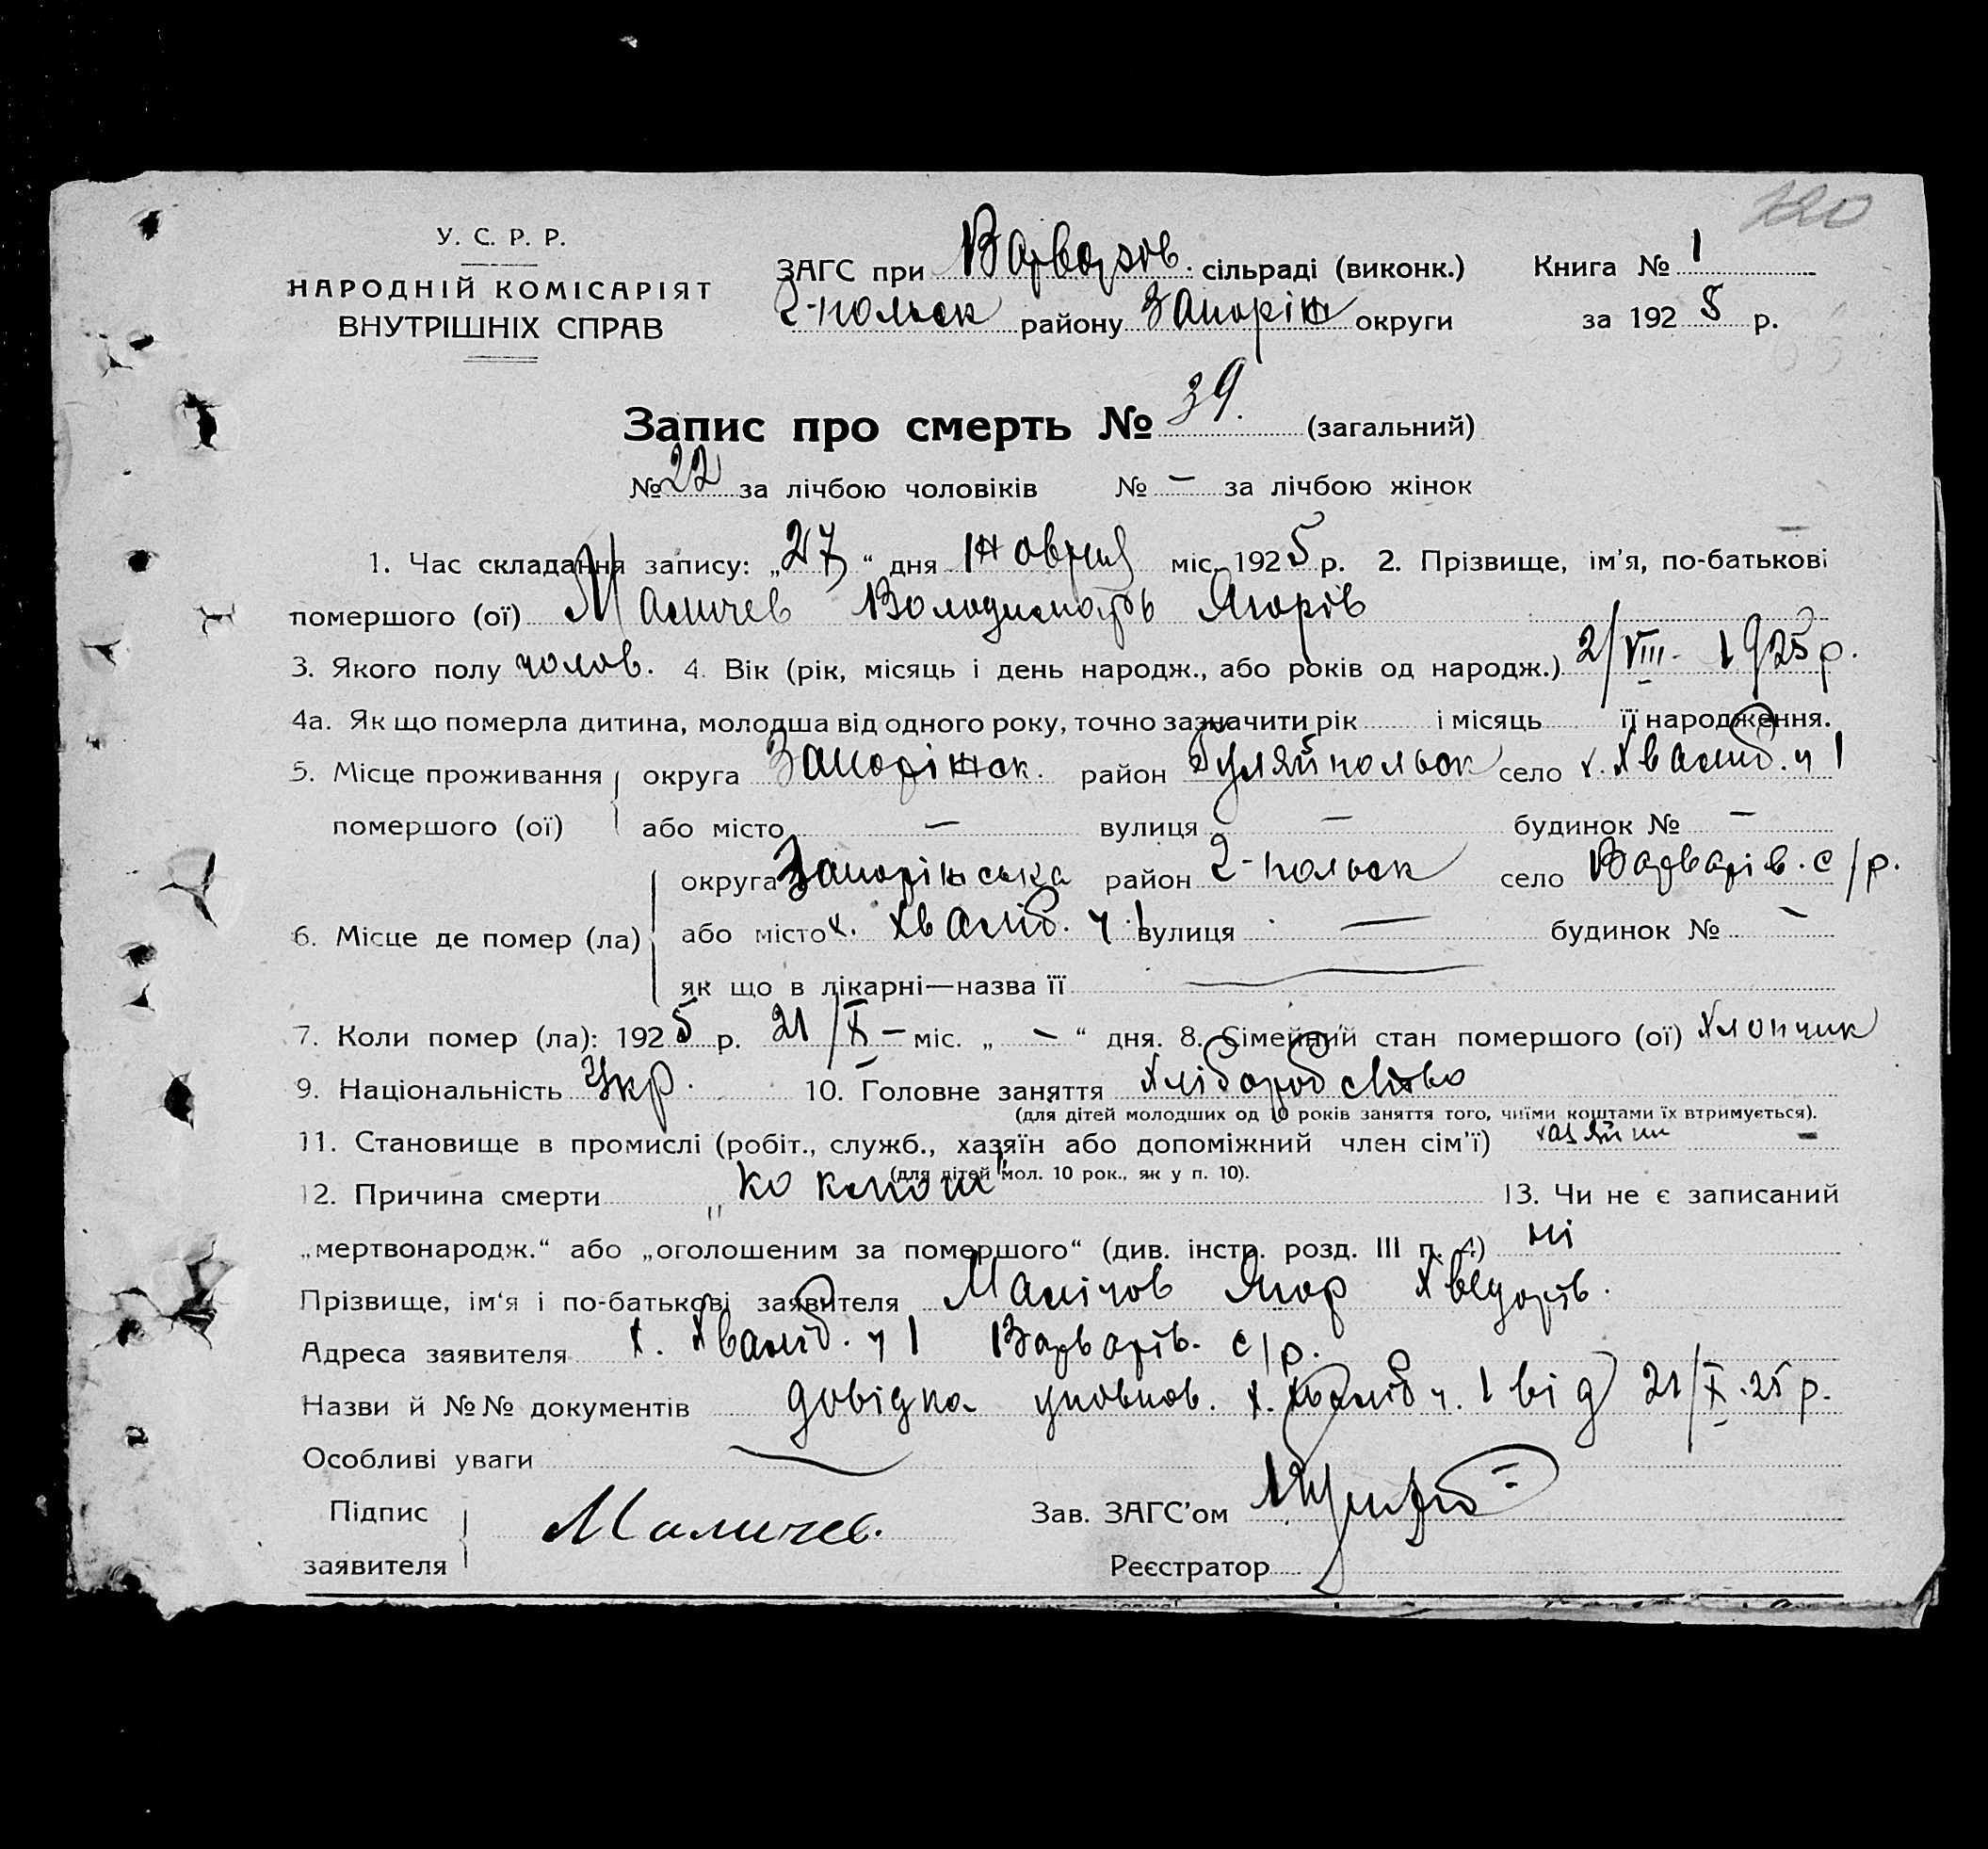 120
У. С. Р. Р.
НАРОДНІЙ КОМІСАРІЯТ
ВНУТРІШНІХ СПРАВ
ЗАГС при Варваров. сільраді (виконк.) Книга № 1
Г-польск району Запоріж округи за 1925 р.
Запис про смерть № 39. (загальний)
№ 22 за лічбою чоловіків № – за лічбою жінок
1. Час складання запису: „27“ дня Жовтня міс. 1925 р. 2. Прізвище, ім'я, по-батькові
помершого (ої) Маличев Володимать Ягорів
3. Якого полу чолов. 4. Вік (рік, місяць і день народж., або років од народж.) 2/VIII- 1925 р.
4а. Як що померла дитина, молодша від одного року, точно зазначити рік і місяць її народження.
5. Місце проживання округа Запоріжск. район Гуляйпольск село х. Хваліб. ч 1
помершого (ої) або місто – вулиця – будинок № –
округа Запоріжська район Г-польск село Варварів. с/р.
6. Місце де помер (ла) або місто х. Хваліб. ч. 1 вулиця – будинок № –
як що в лікарні—назва її
7. Коли помер (ла): 1925 р. 21/X – міс. „ – “ дня. 8. Сімейний стан помершого (ої) Хлопчик
9. Національність Укр. 10. Головне заняття Хліборобство
(для дітей молодших од 10 років заняття того, чиїми коштами їх втримується).
11. Становище в промислі (робіт., служб., хазяїн або допоміжний член сім'ї) хазяйин –
(для дітей мол. 10 рок., як у п. 10).
12. Причина смерти „коклюш“ 13. Чи не є записаний
„мертвонародж.“ або „оголошеним за помершого“ (див. інстр. розд. III п. 4) ні
Прізвище, ім'я і по-батькові заявителя Малічов Ягор Хведорів.
Адреса заявителя х. Хваліб. ч 1 Варварів. с/р.
Назви й №№ документів довідка уповнов. х. Хваліб ч. 1 від 21/X.25 р.
Особливі уваги
Підпис Маличев. Зав. ЗАГС'ом
заявителя Реєстратор